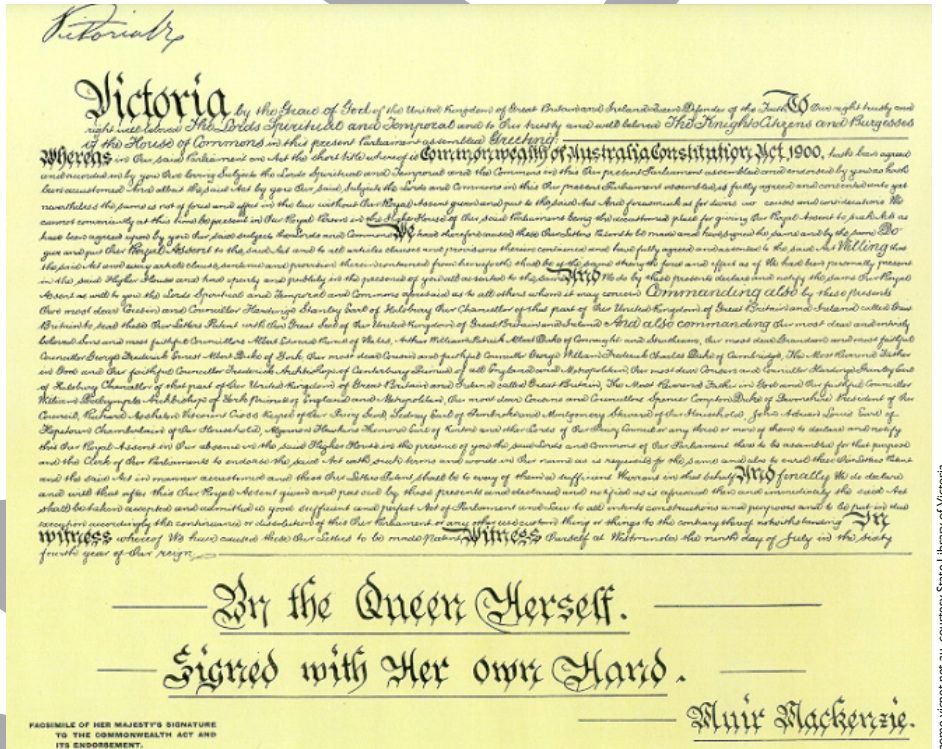 Victoria R
Victoria by the Grace of God of the United Kingdom of Great Britain and Ireland Queen Defender of the Faith To Our right trusty and
right well beloved The Lords Spiritual and Temporal and to Our trusty and well beloved The Knights Citizens and Burgesses
of the House of Commons in this present Parliament assembled Greeting.
Whereas in Our said Parliament an Act the short title whereof is Commonwealth of Australia Constitution Act, 1900, hath been agreed
and accorded on by you Our loving Subjects the Lords Spiritual and Temporal and the Commons in this Our present Parliament assembled and endorsed by you as hath
been accustomed And albeit the said Act by you Our said Subjects the Lords and Commons in this Our present Parliament assembled is fully agreed and consented unto yet
nevertheless the same is not of force and effect in the law without Our Royal Assent given and put to the said Act And forasmuch as for divers causes and considerations We
cannot conveniently at this time be present in Our Royal Person in the Higher House of Our said Parliament being the accustomed place for giving Our Royal Assent to such Acts as
have been agreed upon by you Our said subjects the Lords and Commons We have therefore caused these Our Letters Patent to be made and have signed the same and by the same Do
give and put Our Royal Assent to the said Act and to all articles clauses and provisions therein contained and have fully agreed and assented to the said Act Willing that
the said Act and every article clause sentence and provision therein contained from henceforth shall be of the same strength force and effect as if We had been personally present
in the said Higher House and had openly and publicly in the presence of you all assented to the same And We do by these presents declare and notify the same Our Royal
Assent as well to you the Lords Spiritual and Temporal and Commons aforesaid as to all others whom it may concern Commanding also by these presents
Our most dear Cousin and Councillor Hardinge Stanley Earl of Halsbury Our Chancellor of that part of Our United Kingdom of Great Britain and Ireland called Great
Britain to seal these Our Letters Patent with Our Great Seal of Our United Kingdom of Great Britain and Ireland And also commanding Our most dear and entirely
beloved Sons and most faithful Councillors Albert Edward Prince of Wales, Arthur William Patrick Albert Duke of Connaught and Strathearn, Our most dear Grandson and most faithful
Councillor George Frederick Ernest Albert Duke of York Our most dear Cousin and faithful Councillor George William Frederick Charles Duke of Cambridge, The Most Reverend Father
in God and Our faithful Councillor Frederick Archbishop of Canterbury Primate of all England and Metropolitan, Our most dear Cousin and Councillor Hardinge Stanley Earl
of Halsbury Chancellor of that part of Our United Kingdom of Great Britain and Ireland called Great Britain, The Most Reverend Father in God and Our faithful Councillor
William Archbishop of York Primate of England and Metropolitan, Our most dear Cousins and Councillors Spencer Compton Duke of Devonshire President of Our
Council, Richard Assheton Viscount Cross Keeper of Our Privy Seal, Sidney Earl of Pembroke and Montgomery Steward of Our Household, John Adrian Louis Earl of
Hopetoun Chamberlain of Our Household, and other the Lords of Our Privy Council or any three or more of them to declare and notify
this Our Royal Assent in Our absence in the said Higher House in the presence of you the said Lords and Commons of Our Parliament there to be assembled for that purpose
and the Clerk of Our Parliaments to endorse the said Act with such terms and words in Our name as is requisite for the same and also to enrol these Our Letters Patent
and the said Act in manner accustomed and these Our Letters Patent shall be to every of them a sufficient Warrant in that behalf And finally We do declare
and will that after this Our Royal Assent given and passed by these presents and declared and notified as is aforesaid then and immediately the said Act
shall be taken accepted and admitted a good sufficient and perfect Act of Parliament and Law to all intents constructions and purposes and to be put in due
execution accordingly the continuance or dissolution of this Our Parliament or any other use custom thing or things to the contrary thereof notwithstanding In
witness whereof We have caused these Our Letters to be made Patent Witness Ourself at Westminster the ninth day of July in the sixty
fourth year of Our reign
By the Queen Herself.
Signed with Her own Hand.
Muir Mackenzie.
FACSIMILE OF HER MAJESTY'S SIGNATURE
TO THE COMMONWEALTH ACT AND
ITS ENDORSEMENT.
courtesy State Library of Victoria